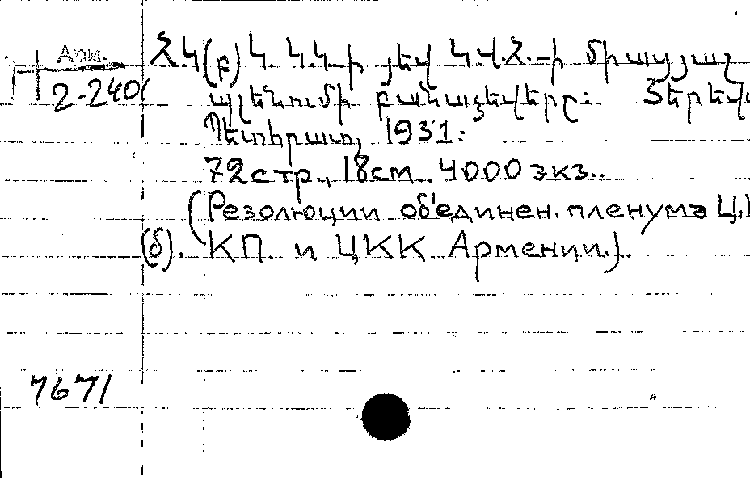 Арм.
2-240
Հ.Կ(բ)Կ Կ.Կ-ի յեվ Կ.Վ.Հ.-ի միացյալ
պլենումի բանաձեվերը: Յերեվ.
Պետհրատ, 1931:
72 стр., 18 см. 4000 экз..
(Резолюции об'единен. пленума Ц.
(б). КП. и ЦКК Армении.).
7671